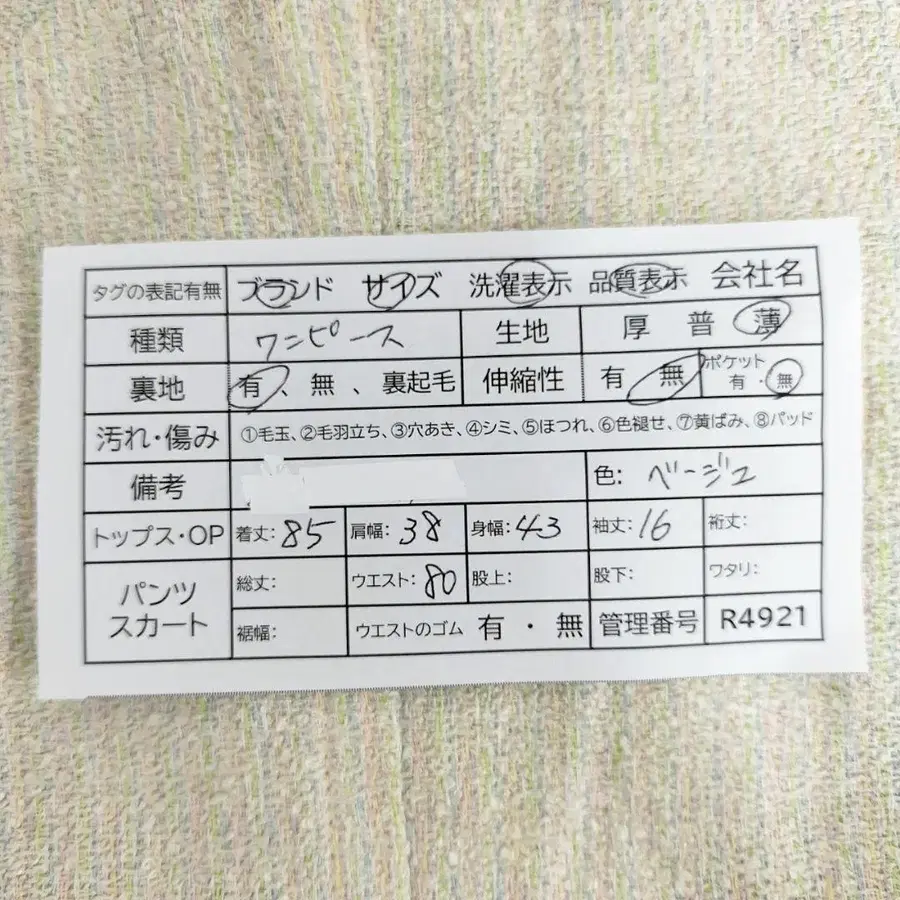 タグの表記有無 ブランド サイズ 洗濯表示 品質表示 会社名
種類 ワンピース 生地 厚 普 薄
裏地 有、無、裏起毛 伸縮性 有 無 ポケット 有・無
汚れ・傷み ①毛玉、②毛羽立ち、③穴あき、④シミ、⑤ほつれ、⑥色褪せ、⑦黄ばみ、⑧パッド
備考 色: ベージュ
トップス・OP 着丈: 85 肩幅: 38 身幅: 43 袖丈: 16 裄丈:
パンツ スカート 総丈: ウエスト: 80 股上: 股下: ワタリ:
裾幅: ウエストのゴム 有・無 管理番号 R4921